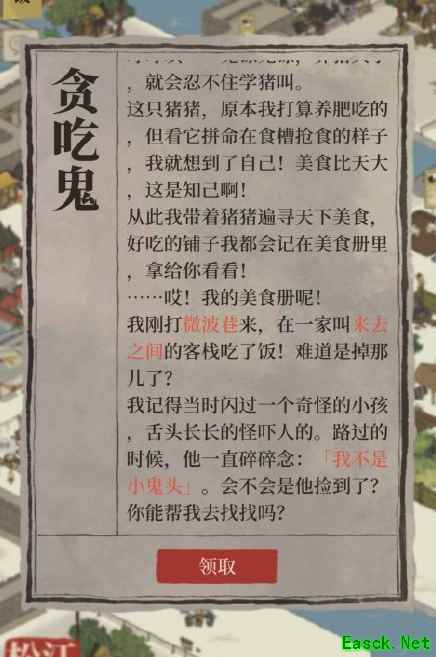 贪吃鬼
，就会忍不住学猪叫。
这只猪猪，原本我打算养肥吃的
，但看它拼命在食槽抢食的样子
，我就想到了自己！美食比天大
，这是知己啊！
从此我带着猪猪遍寻天下美食，
好吃的铺子我都会记在美食册里
，拿给你看看！
……哎！我的美食册呢！
我刚打微波巷来，在一家叫来去
之间的客栈吃了饭！难道是掉那
儿了？
我记得当时闪过一个奇怪的小孩
，舌头长长的怪吓人的。路过的
时候，他一直碎碎念：「我不是
小鬼头」。会不会是他捡到了？
你能帮我去找找吗？
领取
松江
Easck.Net